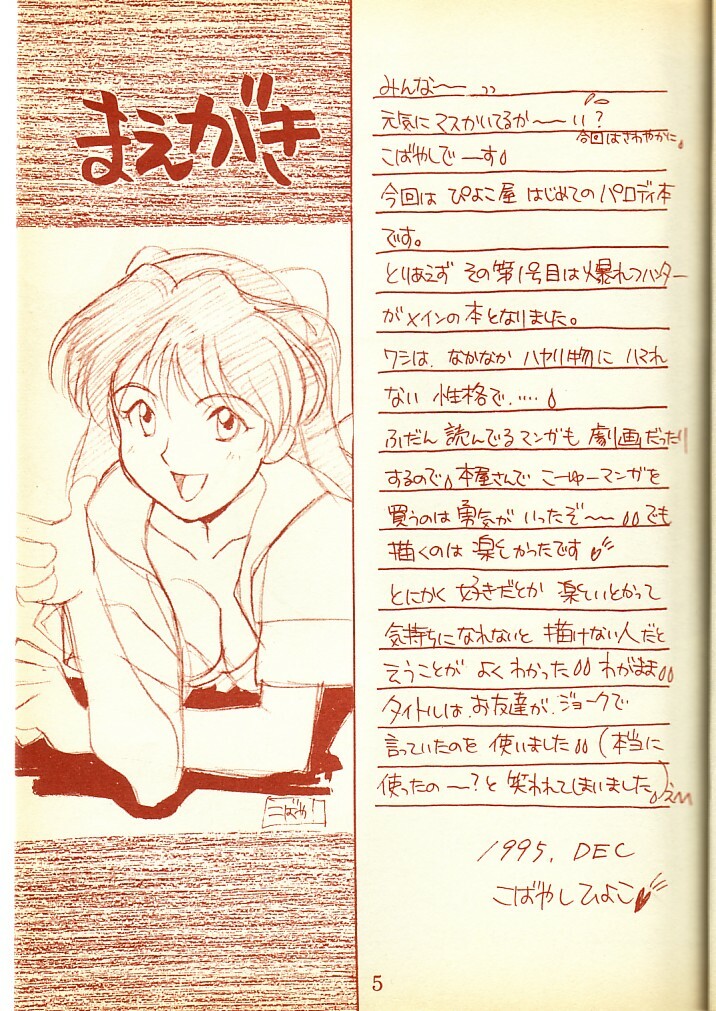 まえがき
みんな〜〜 ッッ
元気に マスかいてるか〜〜い?
今回はさわやかに
こばやしでーす
今回は ぴよこ屋 はじめての パロディ本
です。
とりあえず その第1号目は 爆れつハンター
がメインの本となりました。
ワシは、なかなか ハヤリ物に ハマれ
ない 性格で‥‥
ふだん 読んでるマンガも 劇画だったり
するので 本屋さんで こーゆーマンガを
買うのは 勇気が いったぞ〜〜 でも
描くのは 楽しかったです
とにかく 好きだとか 楽しいとかって
気持ちになれないと 描けない人だと
そうことが よくわかった わがまま
タイトルは、お友達が、ジョークで
言っていたのを 使いました (本当に
使ったの〜? と 笑われてしまいました)
1995. DEC
こばやしひよこ
こばや!
5